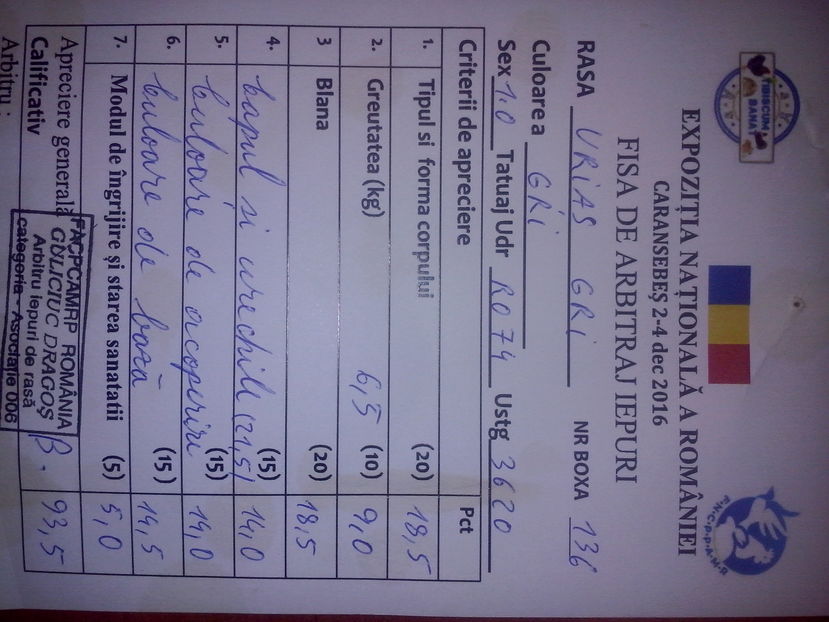 TIBISCUM
BANAT
F.N.C.P.P.A.M.R
EXPOZIȚIA NAȚIONALĂ A ROMÂNIEI
CARANSEBEȘ 2-4 dec 2016
FISA DE ARBITRAJ IEPURI
RASA URIAS GRI NR BOXA 136
Culoarea GRI
Sex 1.0 Tatuaj Udr RO74 Ustg 3620
Criterii de apreciere Pct
1. Tipul si forma corpului (20) 18,5
2. Greutatea (kg) 6,5 (10) 9,0
3 Blana (20) 18,5
4. Capul si urechile (21,5) (15) 14,0
5. Culoare de acoperire (15) 14,0
6. Culoare de bază (15) 14,5
7. Modul de îngrijire și starea sanatatii (5) 5,0
Apreciere generală 93,5
Calificativ
Arbitru :
FACPCAMRP ROMÂNIA
GULICIUC DRAGOȘ
Arbitru iepuri de rasă
categoria - Asociație 006